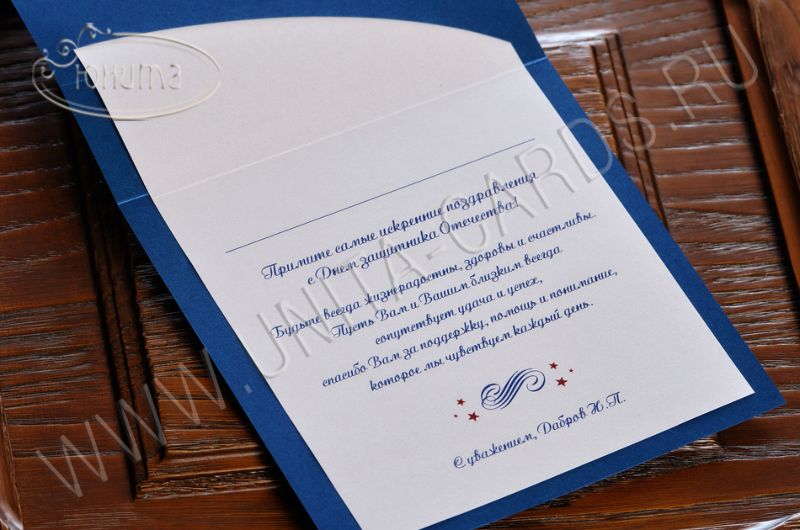 Юнита
Примите самые искренние поздравления
с Днем защитника Отечества!
Будьте всегда жизнерадостны, здоровы и счастливы.
Пусть Вам и Вашим близким всегда
сопутствует удача и успех,
спасибо Вам за поддержку, помощь и понимание,
которое мы чувствуем каждый день.
С уважением, Дабров Н.П.
WWW.UNITA-CARDS.RU